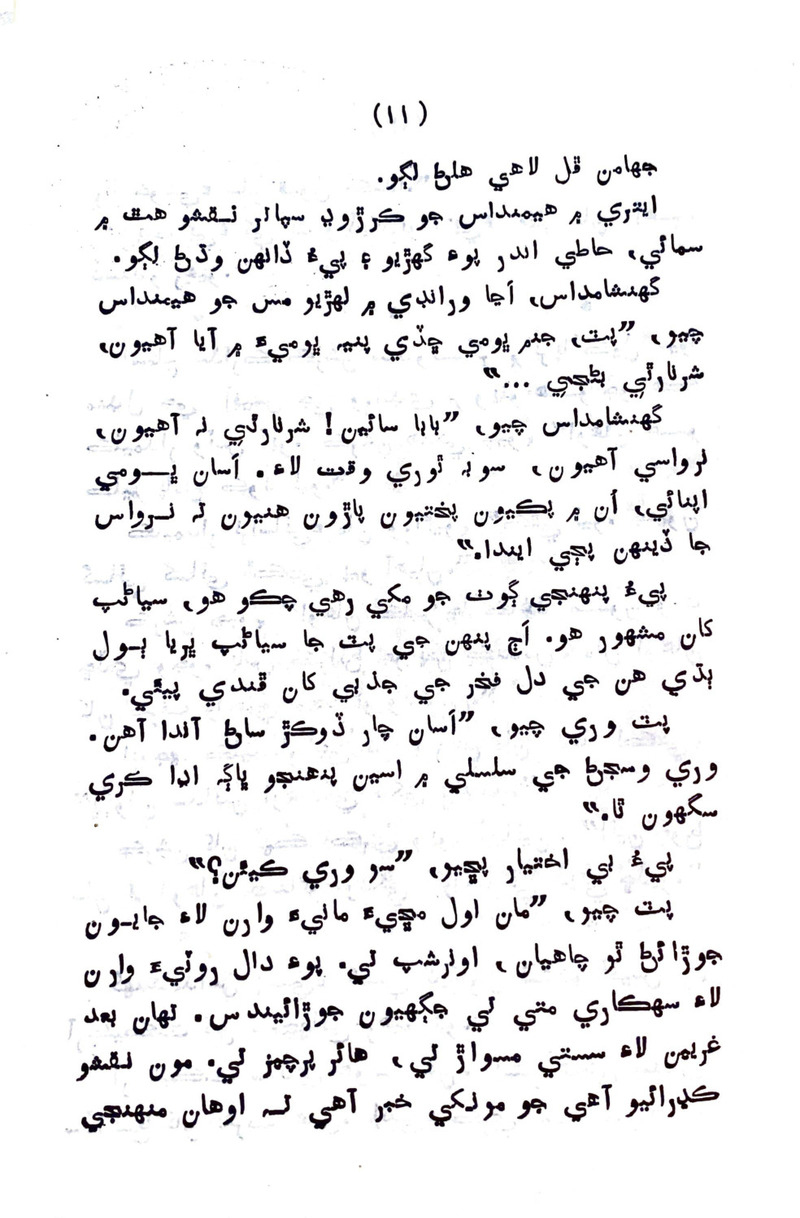 (۱۱)
جهامن ڦل لاهي هلڻ لڳو.
ايتري ۾ هيمنداس جو ڪرڙوڍ سپاٽر نقشو هٿ ۾
سمائي، حاطي اندر پوءِ گهڙيو ۽ پيءُ ڏانهن وڌڻ لڳو.
گهنشامداس، اڃا ورانڊي ۾ لهڙيو مس جو هيمنداس
چيو، ”پٽ، جنم ڀومي ڇڏي پنيہ ڀوميءَ ۾ آيا آهيون،
شرنارٿي بڻجي ...“
گهنشامداس چيو، ”بابا سائين! شرنارٿي نہ آهيون،
نرواسي آهيون، سو بہ ٿوري وقت لاءِ. اَسان ڀــومي
اپنائي، اُن ۾ پڪيون پختيون پاڙون هنيون تہ نــرواس
جا ڏينهن پڄي ايندا.“
پيءُ پنهنجي ڳوٺ جو مکي رهي چڪو هو، سياڻپ
کان مشهور هو. اَڄ پنهن جي پٽ جا سياڻپ ڀريا ٻـول
ٻڌي هن جي دل فخر جي جذبي کان ڦندي پيئي.
پٽ وري چيو، ”اَسان چار ڏوڪڙ ساڻ آندا آهن.
وري وسجڻ جي سلسلي ۾ اسين پنهنجو ڀاڱہ ادا ڪري
سگهون ٿا.“
پيءُ بي اختيار پڇيو، ”سو وري ڪيئن؟“
پٽ چيو، ”مان اول مڇيءَ مانيءَ وارن لاءِ جايـون
جوڙائڻ ٿو چاهيان، اونرشپ تي. پوءِ دال روٽيءَ وارن
لاءِ سهڪاري متي تي جڳهيون جوڙائيندس. تهان بعد
غريبن لاءِ سستي مسواڙ تي، هائر پرچيز تي. مون نقشو
ڪڍرائيو آهي جو مونکي خبر آهي تــہ اوهان منهنجي